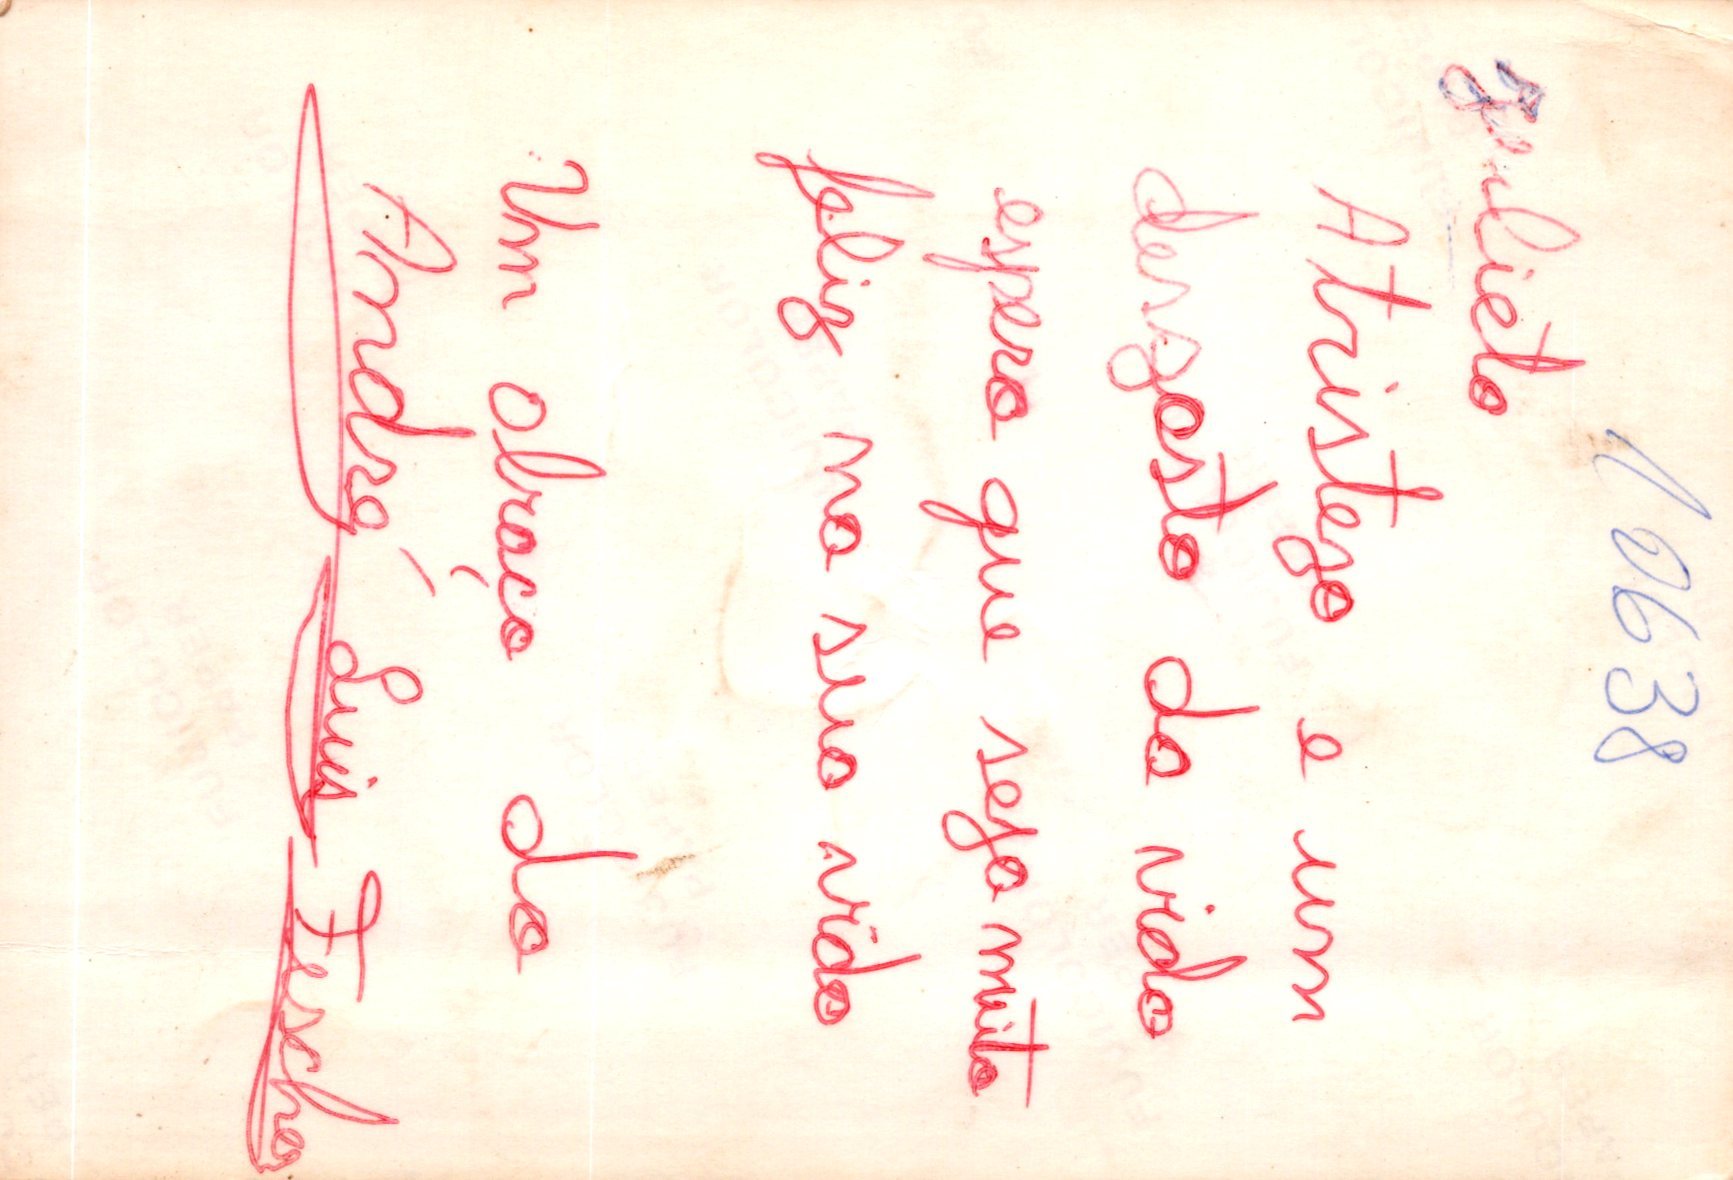 10638
Julieta
A tristeza e um
desgosto da vida
espero que seja muito
feliz na sua vida
Um abraço do
André Luis Fesch